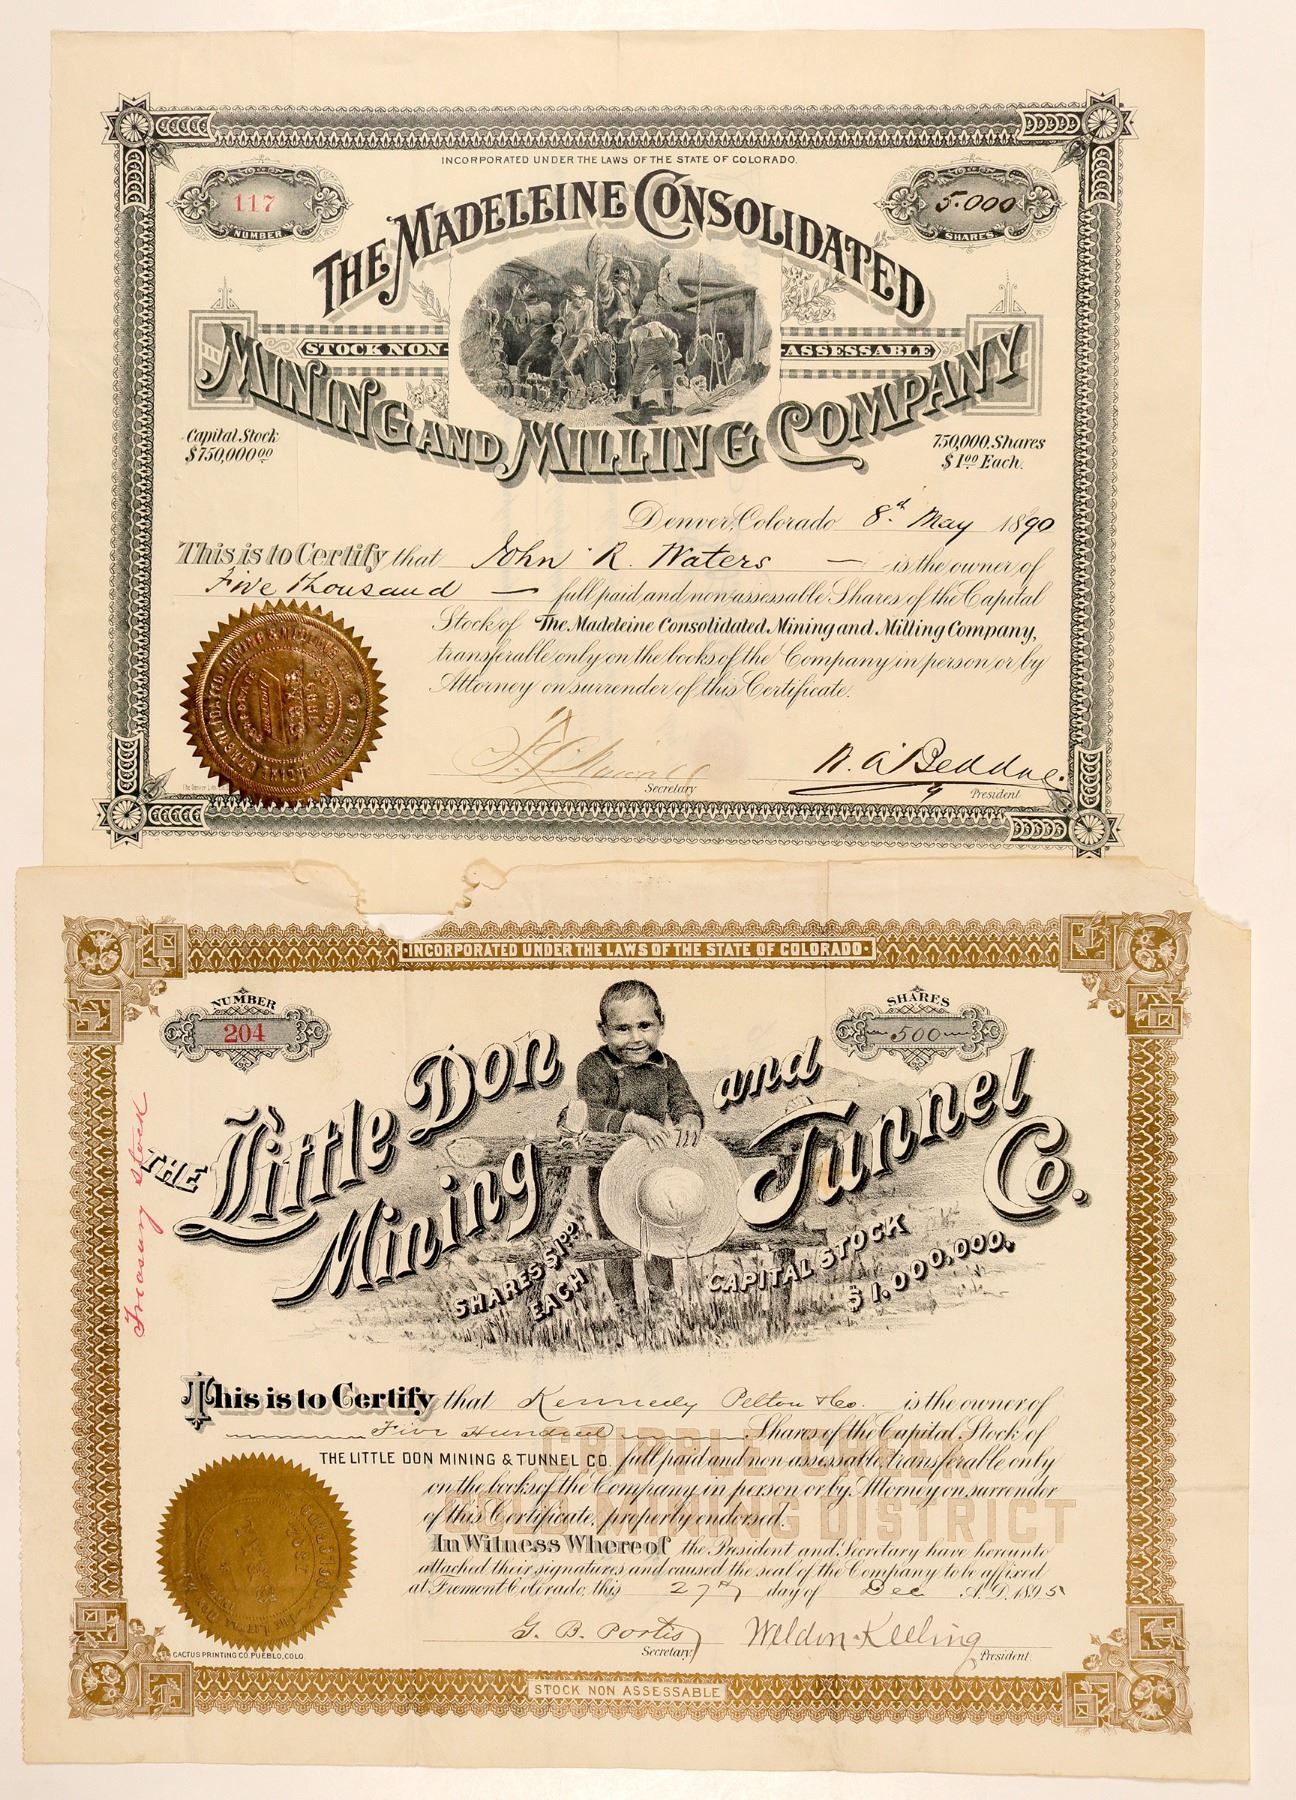 INCORPORATED UNDER THE LAWS OF THE STATE OF COLORADO.
117
NUMBER
5.000
SHARES
THE MADELEINE CONSOLIDATED
STOCK NON-ASSESSABLE
MINING AND MILLING COMPANY
Capital Stock
$750,000.00
750,000 Shares
$1.00 Each.
Denver, Colorado 8.d May 1890
This is to Certify that John R. Waters — is the owner of
Five thousand — full paid and non-assessable Shares of the Capital
Stock of The Madeleine Consolidated Mining and Milling Company,
transferable only on the books of the Company in person or by
Attorney on surrender of this Certificate.
Secretary
President
INCORPORATED UNDER THE LAWS OF THE STATE OF COLORADO
NUMBER
204
SHARES
500
Treasury Stock
THE Little Don
Mining
and
Tunnel
Co.
SHARES $1.00
EACH
CAPITAL STOCK
$1,000,000.
This is to Certify that Kennedy Pelton & Co. is the owner of
Five Hundred Shares of the Capital Stock of
THE LITTLE DON MINING & TUNNEL CO. full paid and non-assessable, transferable only
on the books of the Company in person or by Attorney on surrender
of this Certificate, properly endorsed.
CRIPPLE CREEK
GOLD MINING DISTRICT
In Witness Whereof the President and Secretary have hereunto
attached their signatures and caused the seal of the Company to be affixed
at Fremont Colorado, this 27th day of Dec A.D. 1895
G. B. Portis Weldon Keeling
Secretary President
CACTUS PRINTING CO. PUEBLO, COLO.
STOCK NON ASSESSABLE